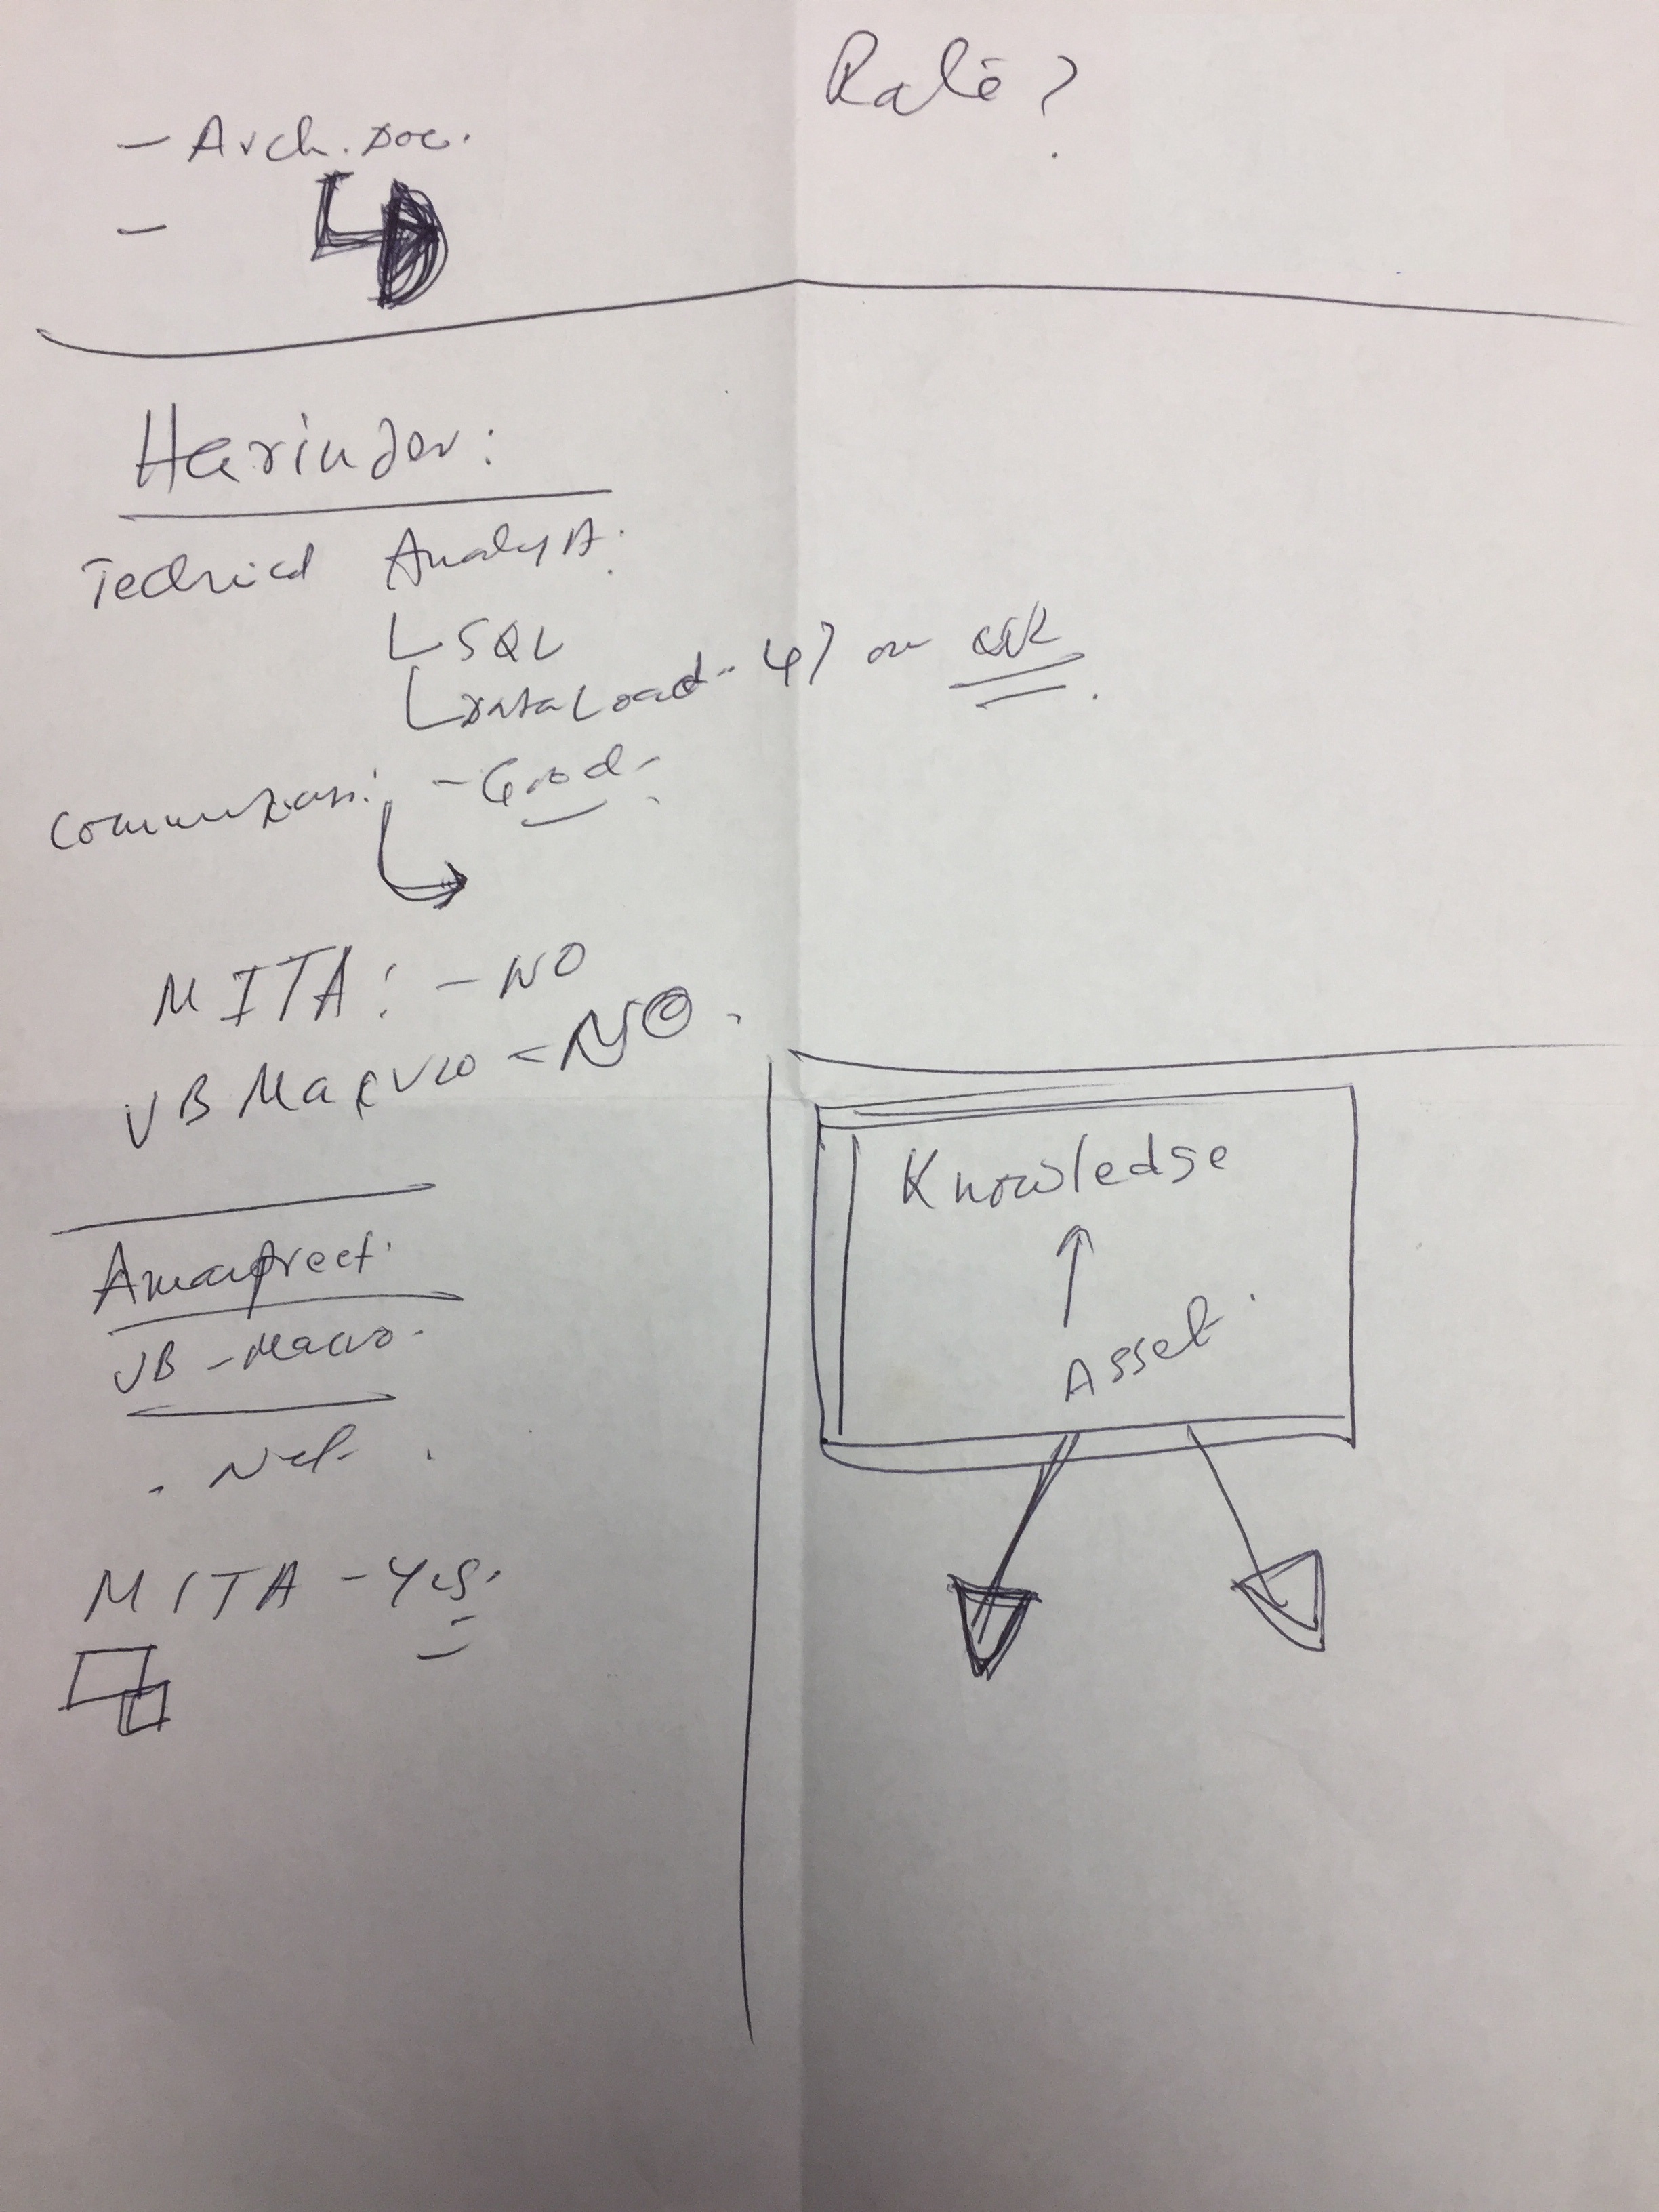 Rate?
- Arch. Doc.
-
Harinder:
Technical Analyst.
SQL
Data Load - 4) on
Communication: - Good.
MITA: - NO
VB Macro - NO.
Amanpreet.
VB - Macro.
. Net.
MITA - Yes.
Knowledge
Asset.